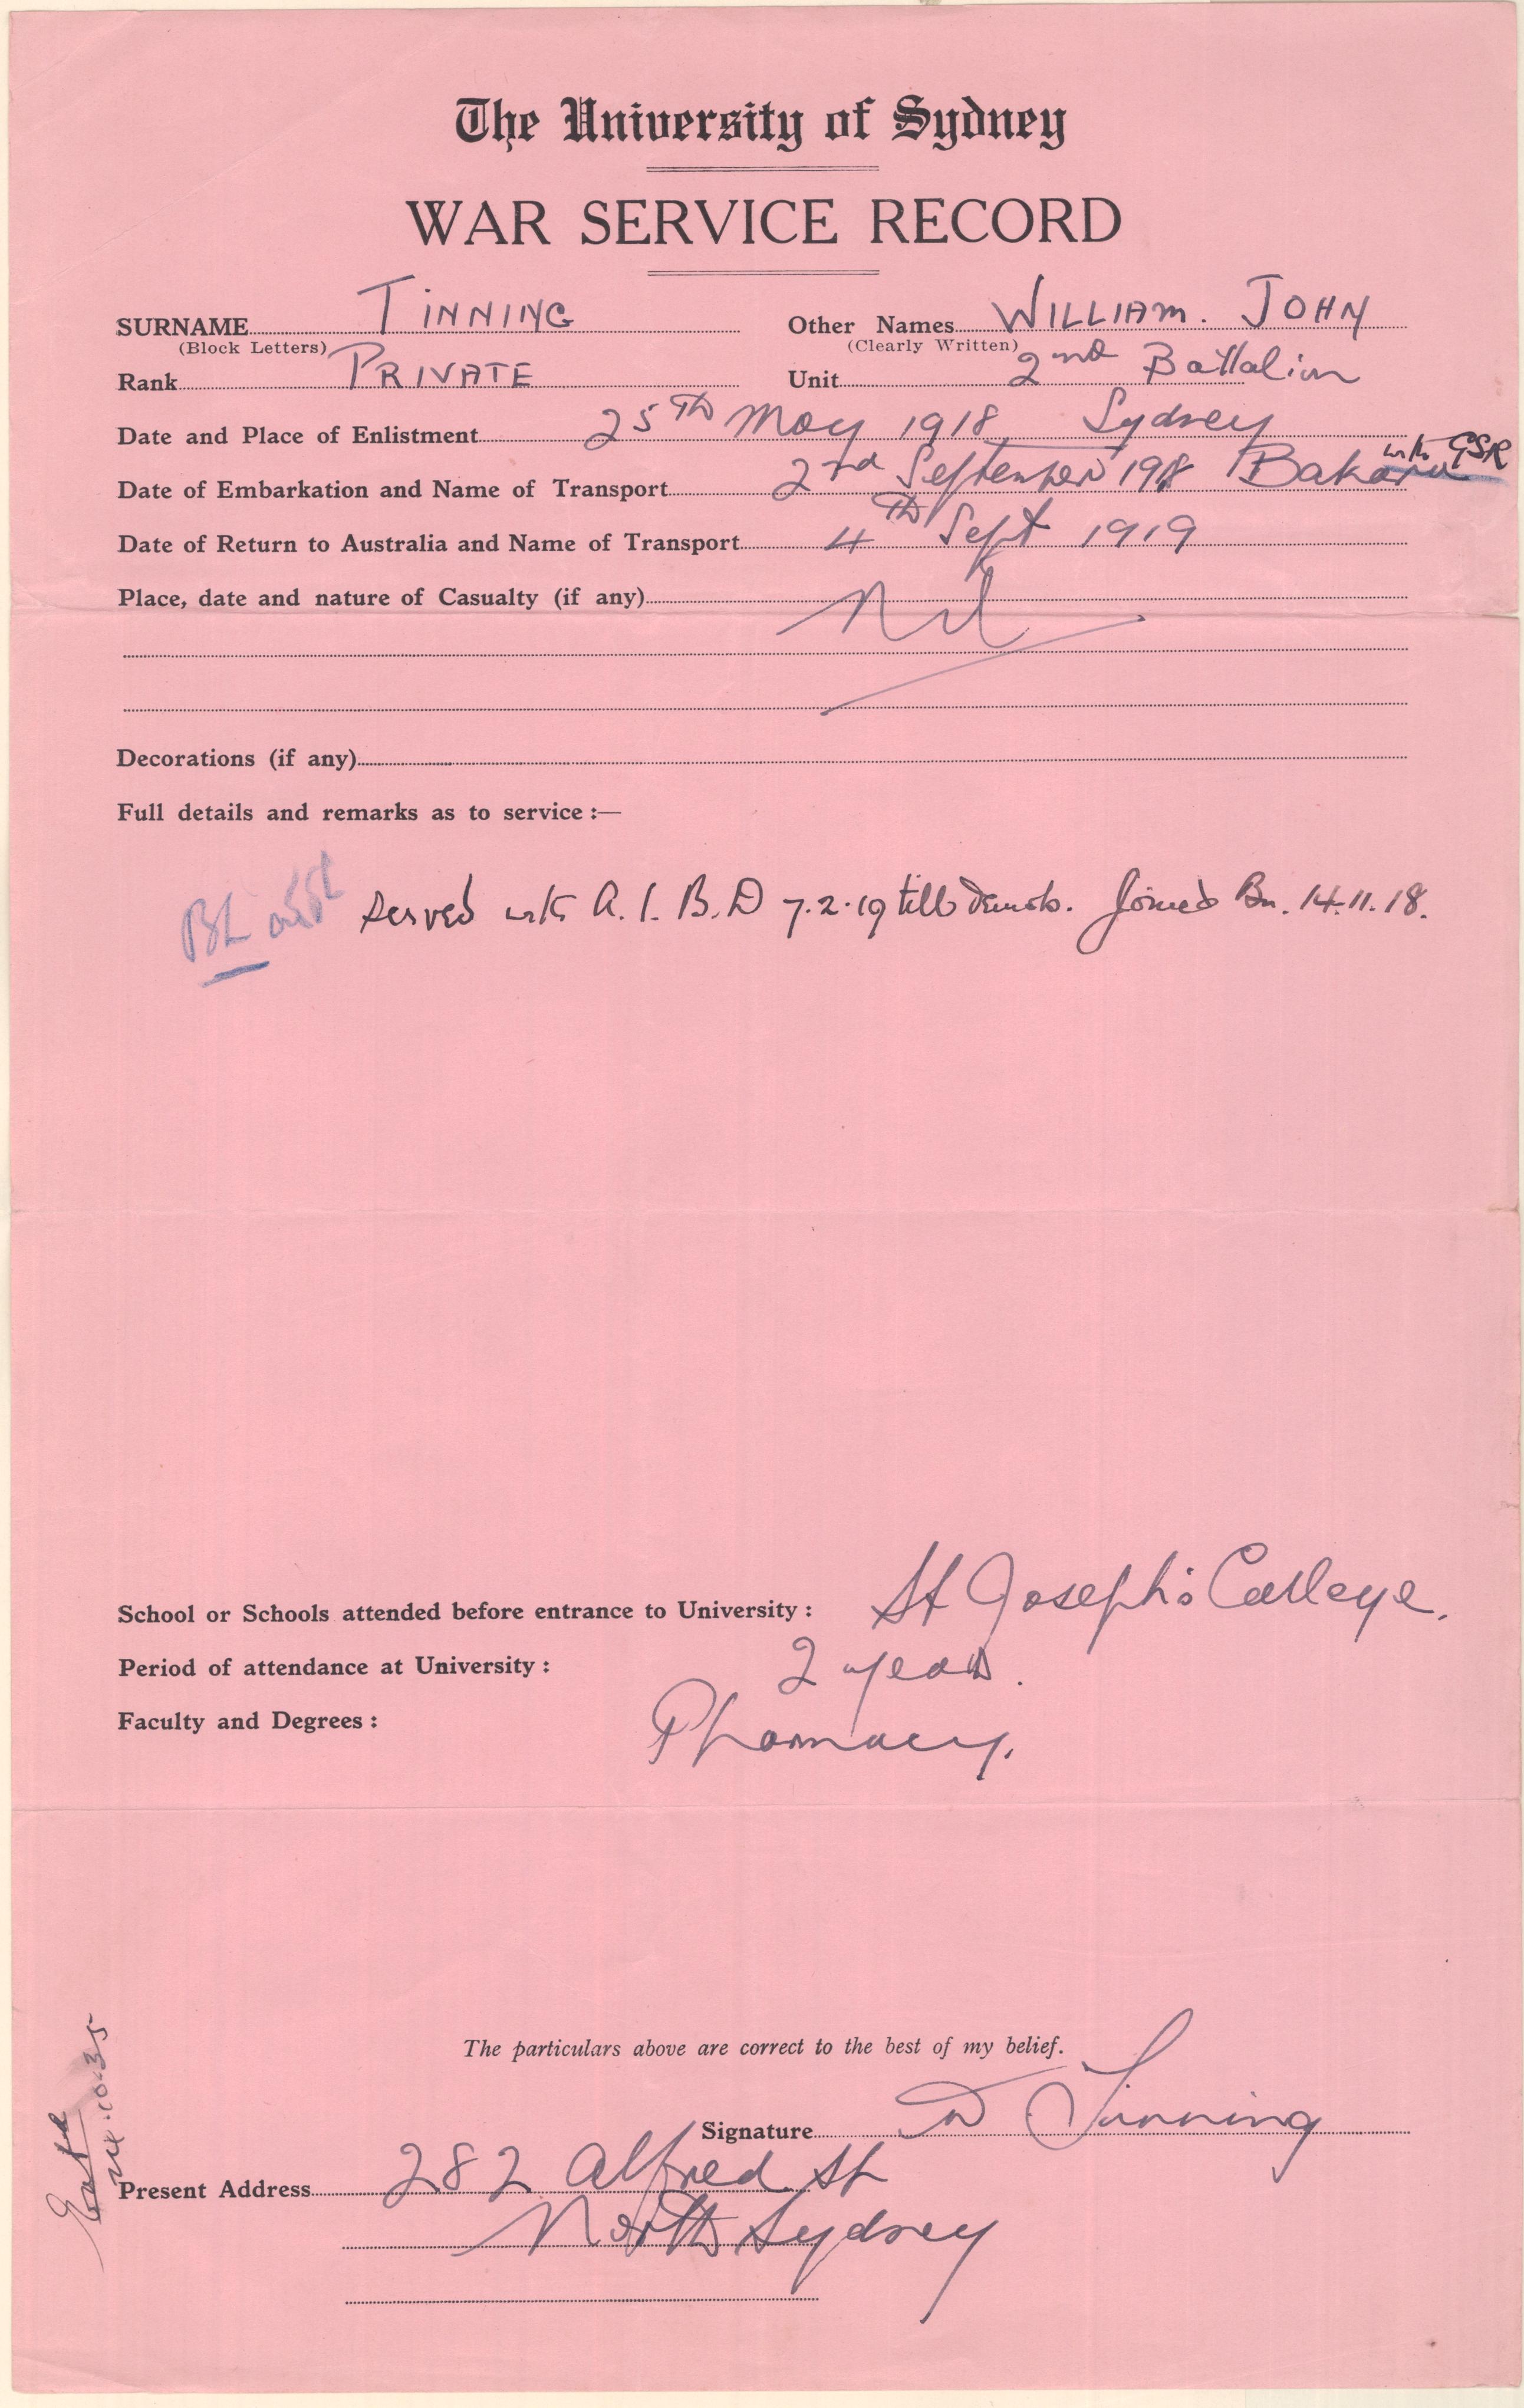 The University of Sydney
WAR SERVICE RECORD
SURNAME TINNING Other Names WILLIAM. JOHN
(Block Letters) (Clearly Written)
Rank PRIVATE Unit 2nd Battalion
Date and Place of Enlistment 25TH May 1918, Sydney
with GSR
Date of Embarkation and Name of Transport 2nd September 1918 Bakara
Date of Return to Australia and Name of Transport 4TH Sept 1919
Place, date and nature of Casualty (if any) Nil
Decorations (if any)
Full details and remarks as to service :—
served with A. I. B. D 7.2.19 till demob. Joined Bn. 14.11.18.
School or Schools attended before entrance to University : St Joseph's College.
Period of attendance at University : 2 years.
Faculty and Degrees : Pharmacy.
The particulars above are correct to the best of my belief.
Signature W Tinning
Present Address 282 Alfred St
North Sydney
24.10.35